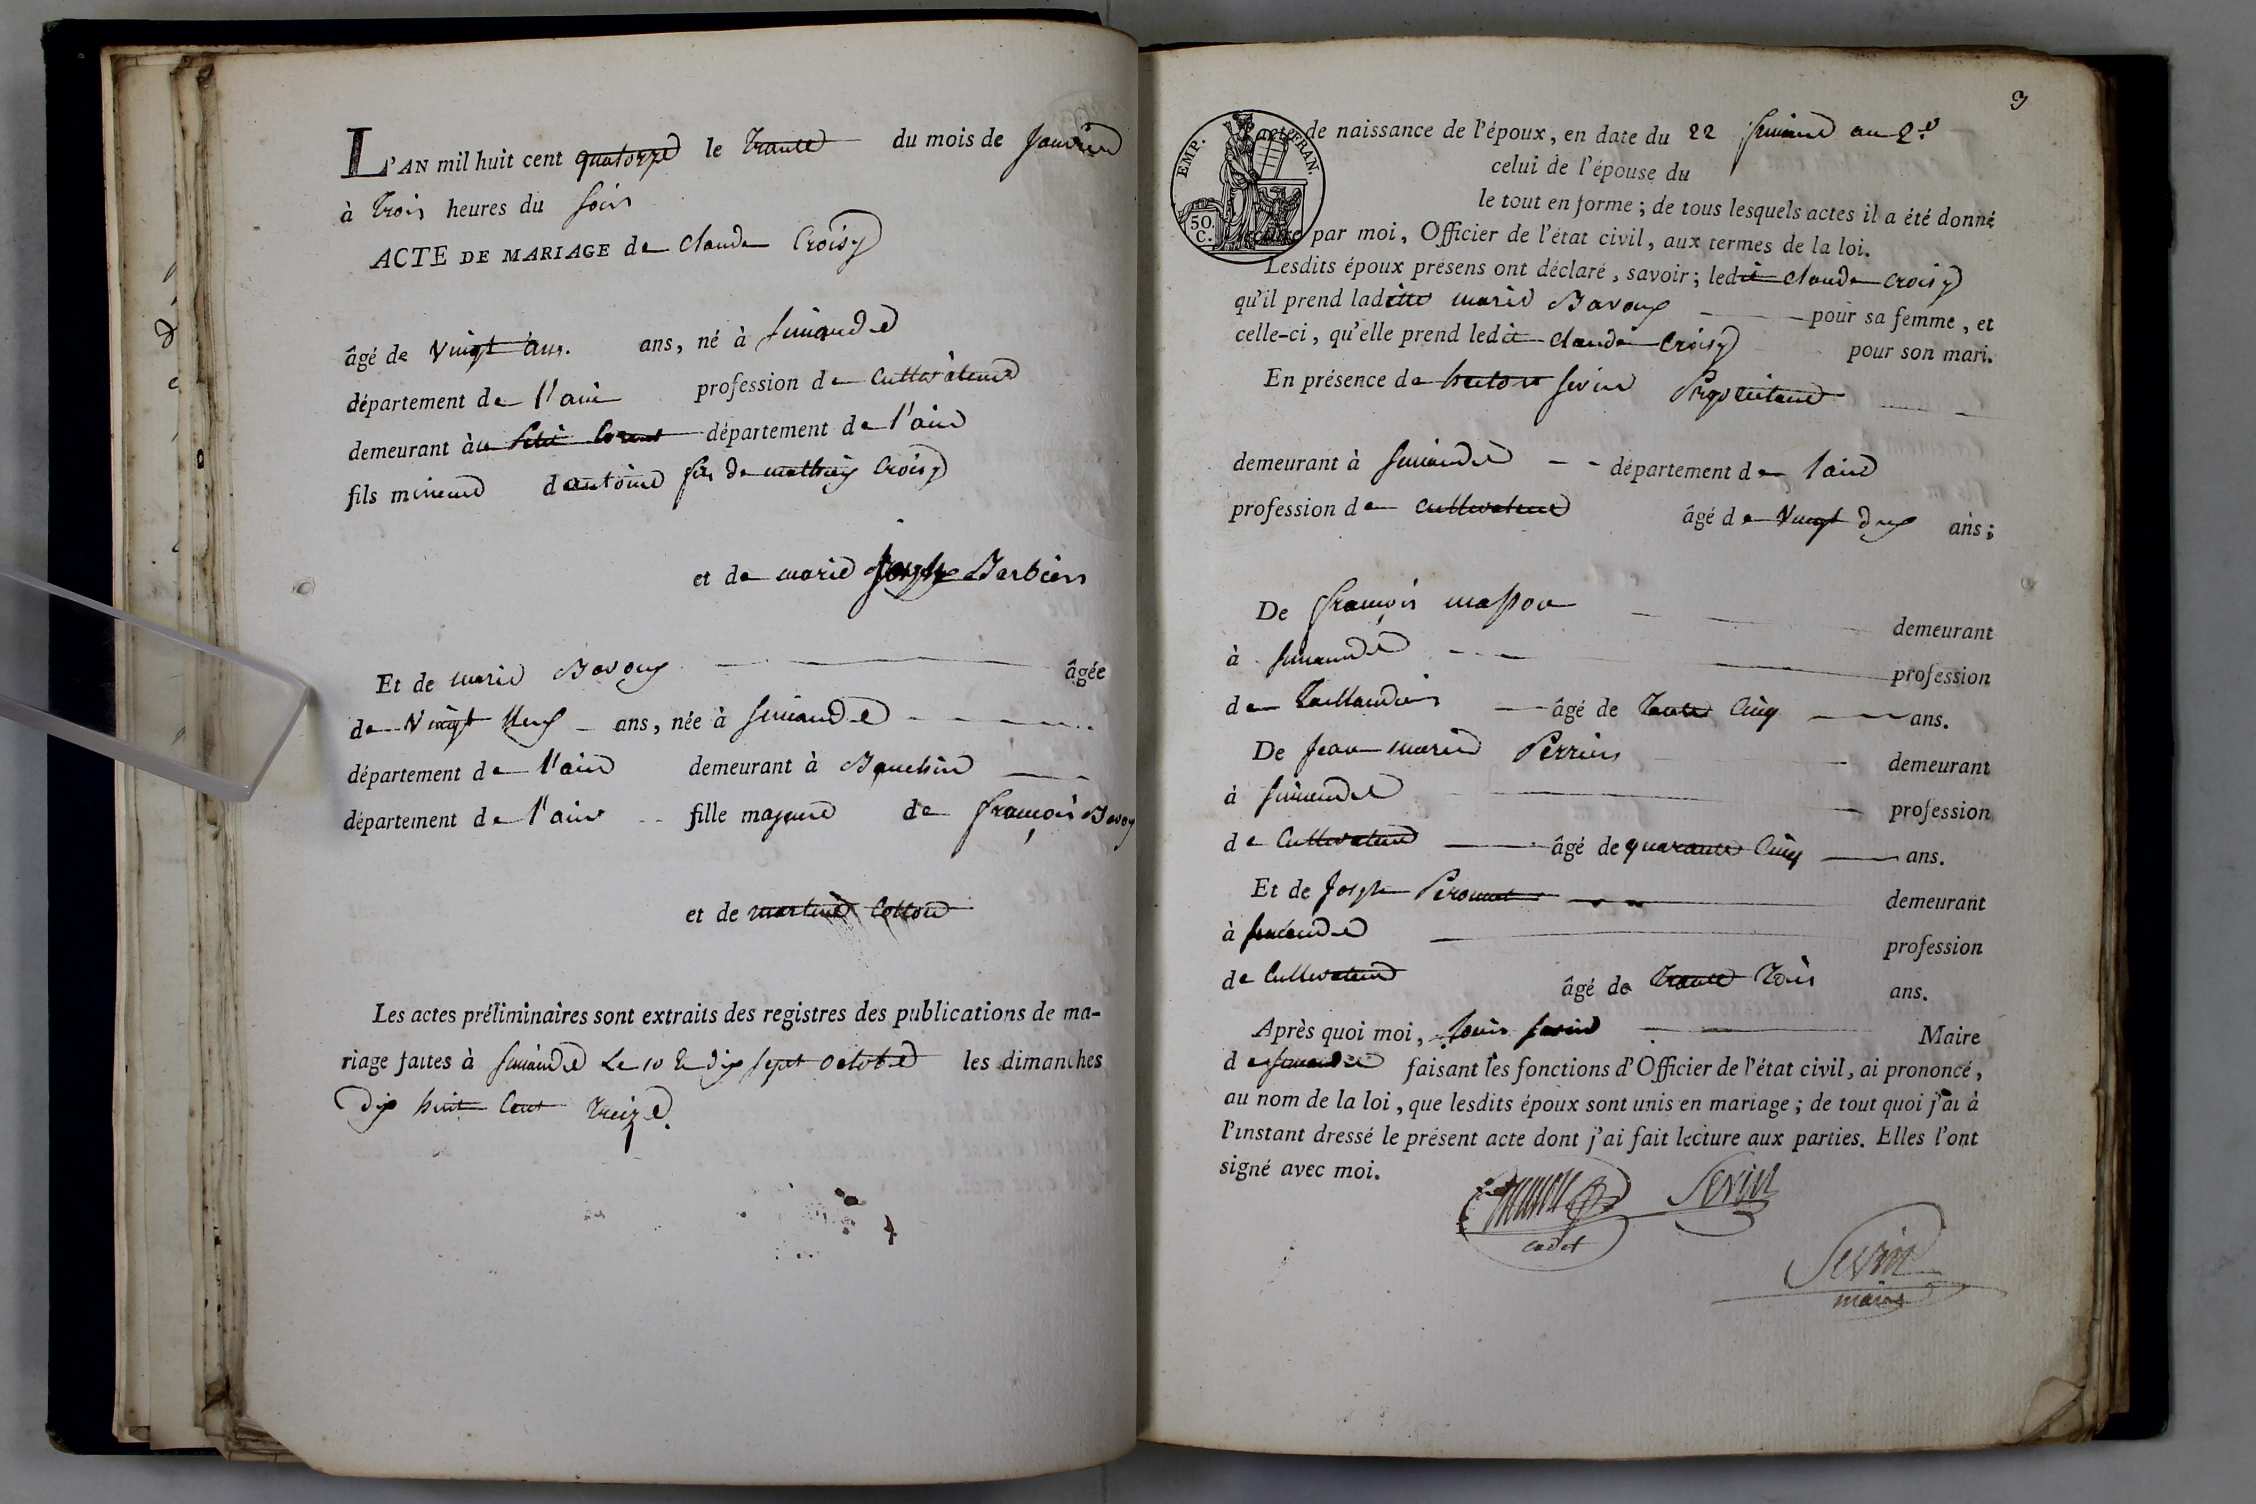 L'AN mil huit cent quatorze le trante du mois de Janvier
à trois heures du soir
ACTE DE MARIAGE de claude Croisy
âgé de vingt ans. ans, né à simandre
département de l'ain profession de cultivateur
demeurant au petit Corent département de l'ain
fils mineur d'antoine fils de mathieu Croisy
et de marie Joseph Barbier
Et de marie Bavoux âgée
de vingt neuf ans, née à simandre
département de l'ain demeurant à
département de l'ain fille majeure de françois Bavoux
et de martine Cotton
Les actes préliminaires sont extraits des registres des publications de ma-
riage faites à simandre Le 10 & dix sept octobre les dimanches
dix huit Cent treize.
3
EMP. FRAN.
50 C.
acte de naissance de l'époux, en date du 22 frimaire an 2.e
celui de l'épouse du
le tout en forme; de tous lesquels actes il a été donné
lecture par moi, Officier de l'état civil, aux termes de la loi.
Lesdits époux présens ont déclaré, savoir; ledit claude croisy
qu'il prend laditte marie Bavoux pour sa femme, et
celle-ci, qu'elle prend ledit claude Croisy pour son mari.
En présence de sevin
demeurant à simandre département de l'ain
profession de cultivateur âgé de vingt deux ans;
De françois masson demeurant
à simandre profession
de taillandier âgé de trente Cinq ans.
De jean marie Perrier demeurant
à simandre profession
de Cultivateur âgé de quarante Cinq ans.
Et de Joseph Peronnet demeurant
à simandre profession
de Cultivateur âgé de trante trois ans.
Après quoi moi, louis sevin Maire
de simandre faisant les fonctions d'Officier de l'état civil, ai prononcé,
au nom de la loi, que lesdits époux sont unis en mariage; de tout quoi j'ai à
l'instant dressé le présent acte dont j'ai fait lecture aux parties. Elles l'ont
signé avec moi.
Sevin
cadet
Sevin
maire